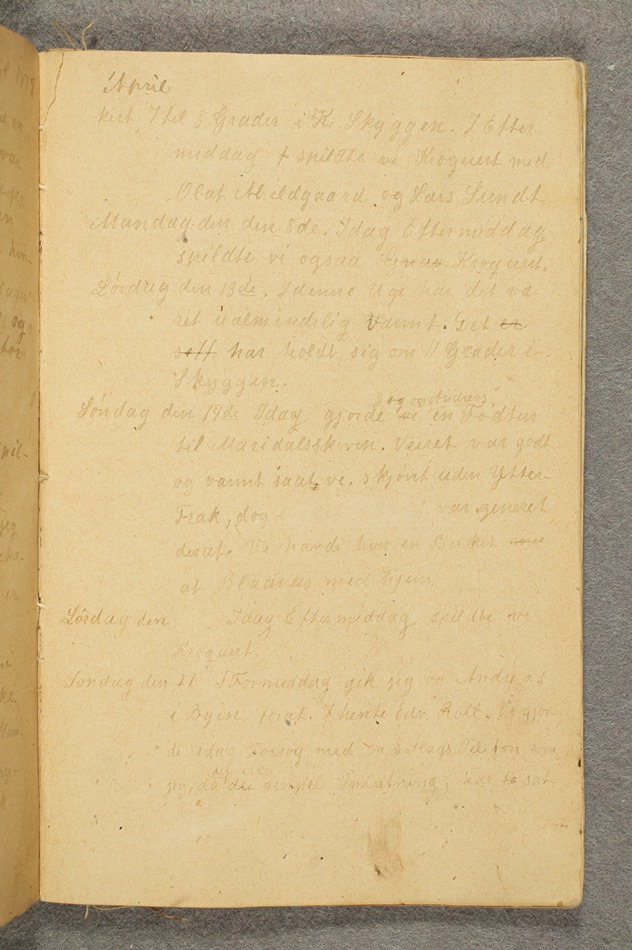 April
kert 7 til 8 Grader i Skyggen. I Efter
middag spildte vi Kroquert med
Olaf Meldgaard og Lars Lundt.
Mandag den den 8de. Idag Eftermiddag
spildte vi ogsaa Kroquert.
Lördag den 13de. I denne Uge har det væ-
ret ualmindelig Varmt. Det er
har holdt sig om 11 Grader i
Skyggen.
Søndag den 14de Idag gjorde vi og Andreas en Fodtur
til Maridalsskoven. Veiret var godt
og varmt saat ve. skjönt uden Ytter-
Frak, dog var generet
deraf. Vi havde hver en Buket
af Blaaveis med hjem
Lördag den Idag Eftermiddag spildte vi
Kroquert.
Søndag den 21 I Formiddag gik jeg og Andreas
i Byen for at hente Edv. Roll. Vi gjor
de idag Forsøg med en Slags Telefon som
jeg, Indretning, har sat